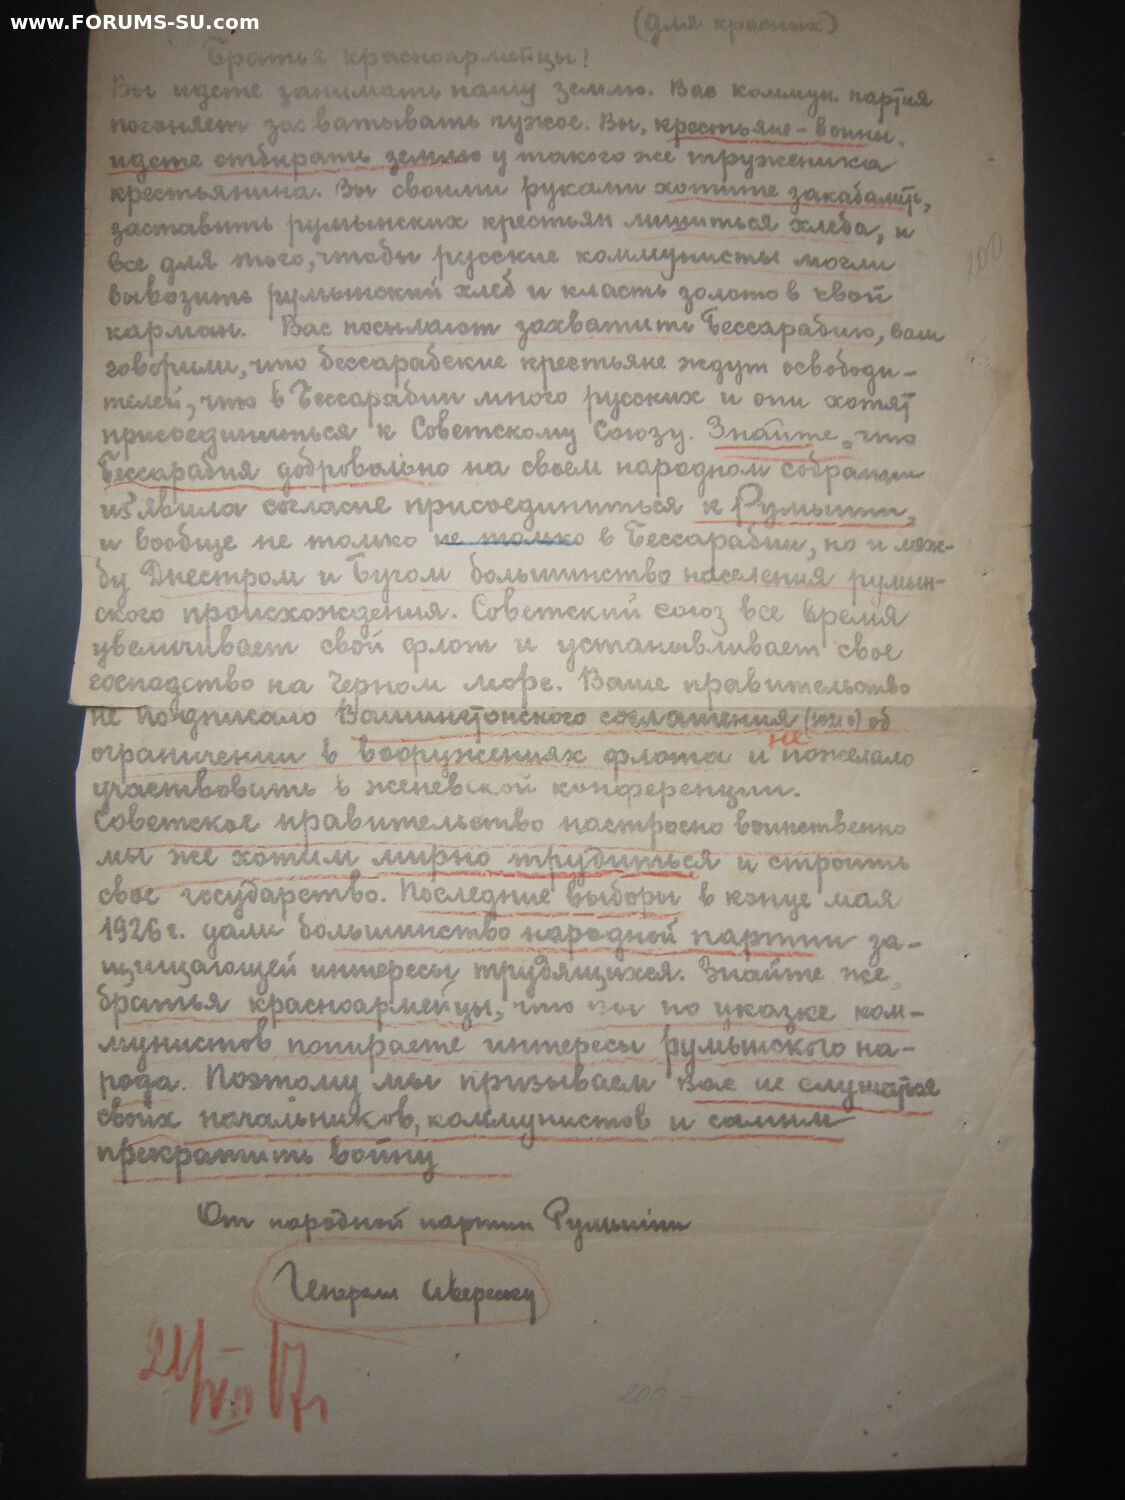 www.FORUMS-SU.com
(для красных)
Братья красноармейцы!
Вы идете занимать нашу землю. Вас коммун. партия
погоняет захватывать чужое. Вы, крестьяне-воины,
идете отбирать землю у такого же труженика
крестьянина. Вы своими руками хотите закабалить,
заставить румынских крестьян лишиться хлеба, и
все для того, чтобы русские коммунисты могли
вывозить румынский хлеб и класть золото в свой
карман. Вас посылают захватить Бессарабию, вам
говорили, что бессарабские крестьяне ждут освободи-
телей, что в Бессарабии много русских и они хотят
присоединиться к Советскому Союзу. Знайте, что
Бессарабия добровольно на своем народном собрании
из'явила согласие присоединиться к Румынии,
и вообще не только не только в Бессарабии, но и меж-
ду Днестром и Бугом большинство населения румын-
ского происхождения. Советский союз все время
увеличивает свой флот и устанавливает свое
господство на Черном море. Ваше правительство
не подписало Вашингтонского соглашения (1921 г) об
ограничении в вооружениях флота и не пожелало
участвовать в женевской конференции.
Советское правительство настроено воинственно
мы же хотим мирно трудиться и строить
свое государство. Последние выборы в конце мая
1926 г. дали большинство народной партии за-
щищающей интересы трудящихся. Знайте же,
братья красноармейцы, что вы по указке ком-
мунистов попираете интересы румынского на-
рода. Поэтому мы призываем Вас не слушатся
своих начальников, коммунистов и самим
прекратить войну
От народной партии Румынии
Генерал Авереску
200
200 –